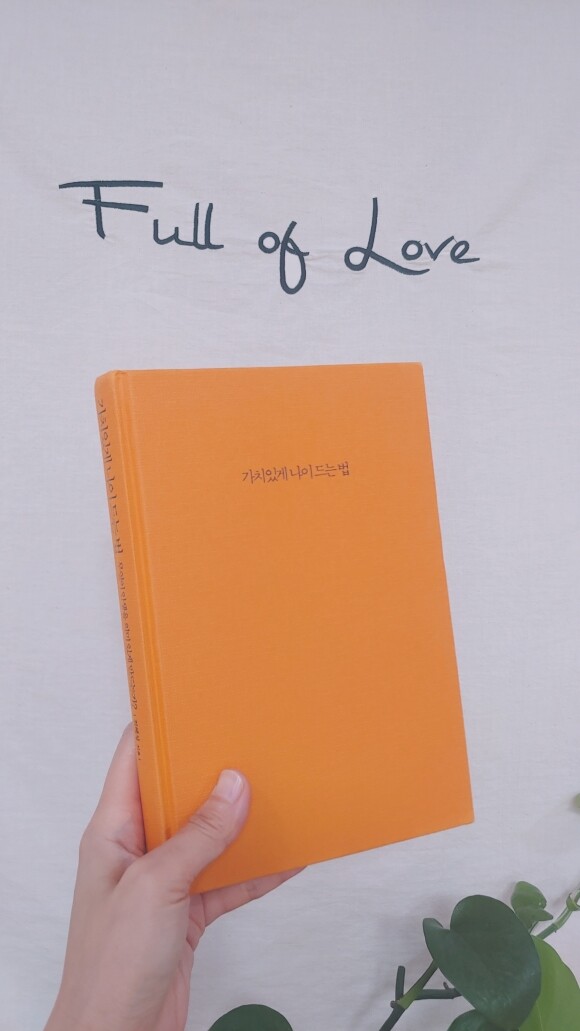 Full of Love
가치있게 나이 드는 법
가치있게 나이 드는 법